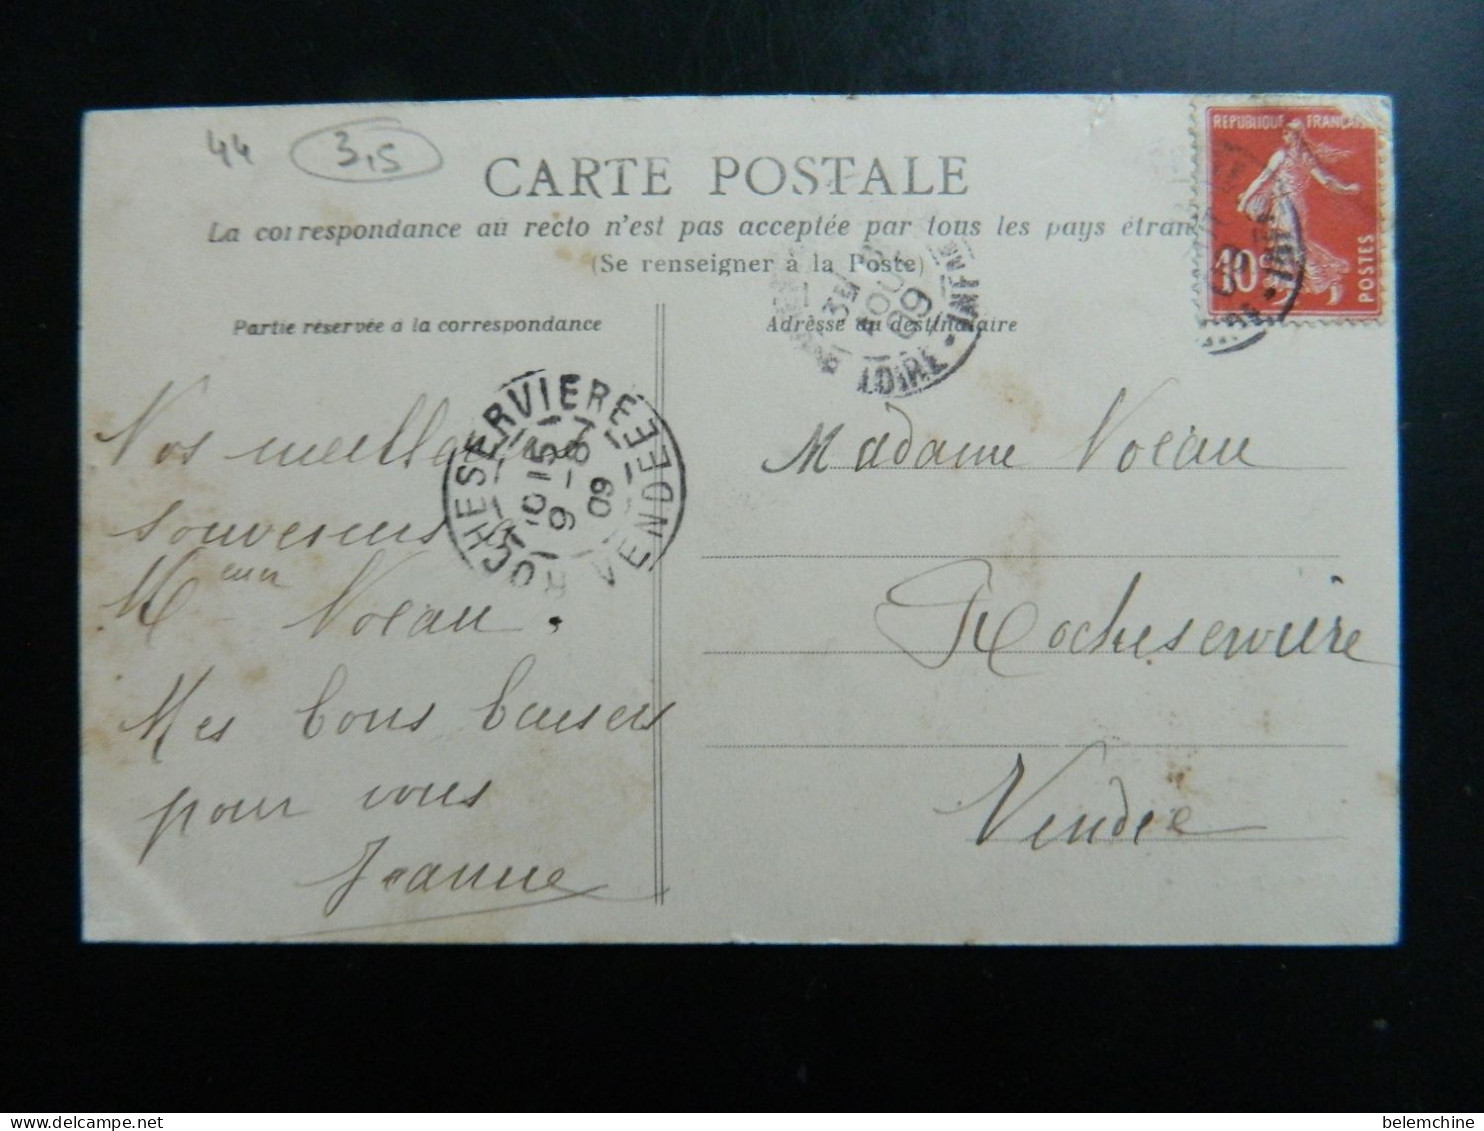 44 3,5
CARTE POSTALE
La correspondance au recto n'est pas acceptée par tous les pays étran
(Se renseigner à la Poste)
Partie réservée à la correspondance
Nos meilleurs
souvenirs à
Meur Noeau.
Mes bons baisers
pour vous
Jeanne
ROCHESERVIERE
VENDEE
10 15
9 - 8
09
Adresse du destinataire
Madame Noeau
Rocheservière
Vendée
3E
AOUT
09
LOIRE - INF
REPUBLIQUE FRANCAI
10 c
POSTES
belemchine